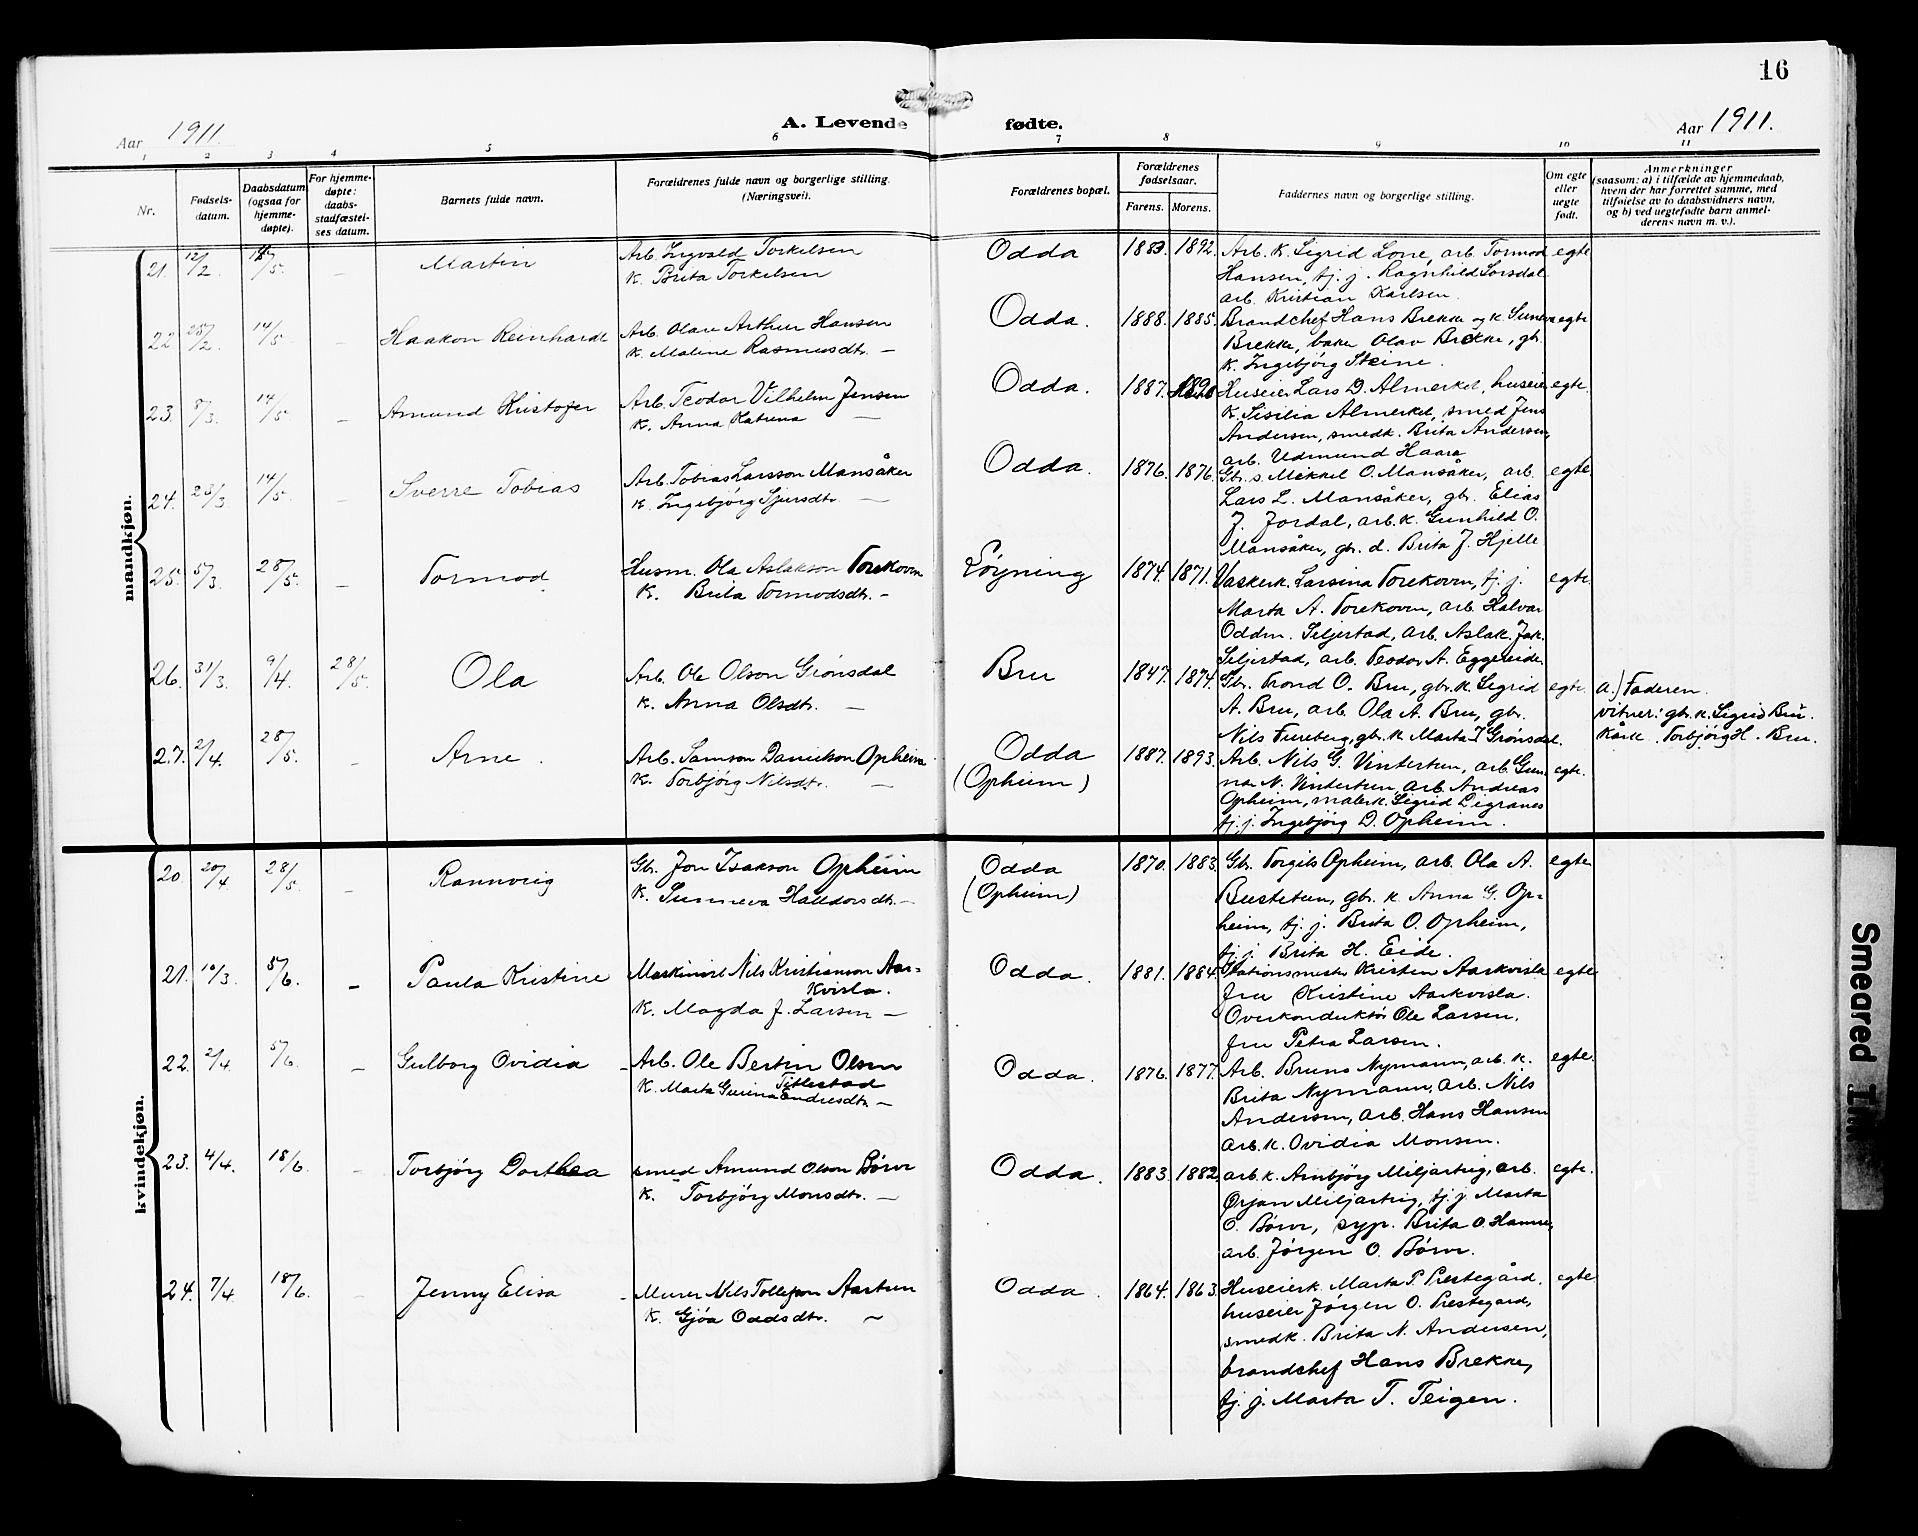 16
Aar 1911.
A. Levende fødte.
Aar 1911.
1 2 3 4 5 6 7 8 9 10 11
Nr.
Fødsels-
datum.
Daabsdatum
(ogsaa for
hjemme-
døpte).
For hjemme-
døpte:
daabs-
stadfæstel-
ses datum.
Barnets fulde navn.
Forældrenes fulde navn og borgerlige stilling.
(Næringsvei).
Forældrenes bopæl.
Forældrenes
fødselsaar.
Farens. Morens.
Faddernes navn og borgerlige stilling.
Om egte
eller
uegte
født.
Anmerkninger
(saasom: a) i tilfælde av hjemmedaab,
hvem der har forrettet samme, med
tilføielse av to daabsvidners navn,
og b) ved uegtefødte barn anmel-
derens navn m. v.).
mandkjøn.
21. 12/2 /5. – Martin
Arb. Ingvald Torkelsen
K. Brita Torkelsen
Odda 1883 1892.
Arb. K. Sigrid Lone, arb. Tormod
Hansen, tj. j. Ragnhild Sørsdal
arb. Kristian Karlsen.
egte
22 25/2. 14/5. – Haakon Reinhardt
Arb. Olav Arthur Hansen
K. Maline Rasmusdt. –
Odda. 1888. 1885.
Brandchef Hans Brekke og K. Suneva
Brekke, baker Olav Brekke, gb.
K. Ingebjørg Steine.
egte
23. 8/3. 14/5. – Amund Kristofer
Arb. Teodor Vilhelm Jensen
K. Anna Katrina –
Odda. 1887. 1890
Huseier Lars D. Almerket, huseier
K. Sisilia Almerket, smed Jens
Andersen, smedk. Brita Andersen,
arb. Udmund Haara
egte.
24. 23/3. 14/5. – Sverre Tobias
Arb. Tobias Larsson Mansåker
K. Ingebjørg Sjursdt. –
Odda. 1876. 1876.
Gb. s. Mikkel O. Mansåker, arb.
Lars L. Mansåker, gb. Elias
J. Jordal, arb. K. Gunhild O.
Mansåker, gb. d. Brita J. Hjelle
egte.
25. 5/3. 28/5. – Tormod
Husm. Ola Aslakson Torekoven
K. Brita Tormodsdt. –
Løyning 1874. 1871.
Vaskerk. Larsina Torekoven, tj. j.
Marta A. Torekoven, arb. Halvar
Oddm. Seljestad, arb. Aslak Jak.
Seljestad, arb. Teodor A. Eggereide.
egte.
26. 31/3. 9/4. 28/5. Ola
Arb. Ole Olson Grønsdal
K. Anna Olsdt. –
Bru 1847. 1874.
Gb. Trond O. Bru, gb. K. Sigrid
A. Bru, arb. Ola A. Bru, gb.
Nils Fureberg, gb. K. Marta T Grønsdal.
egte.
a.) Faderen.
vitner: gb. k. Sigrid Bru.
Kårk. Torbjørg H. Bru.
27. 2/4. 28/5. – Arne.
Arb. Samson Danielson Opheim
K. Torbjørg Nilsdt. –
Odda
(Opheim)
1887. 1893.
Arb. Nils G. Vintertun, arb. Gun-
nar N. Vintertun, arb. Andreas
Opheim, malerk. Sigrid Digranes
tj. j. Ingebjørg D. Opheim.
egte.
kvindekjøn.
20. 20/4 28/5. – Rannveig
Gb. Jon Isakson Opheim
K. Sunneva Halldorsdt. –
Odda
(Opheim)
1870. 1883.
Gb. Torgils Opheim, arb. Ola A.
Bustetun, gb. K. Anna G. Op-
heim, tj. j. Brita O. Opheim,
tj. j. Brita H. Eide.
egte
21. 10/3. 5/6. – Paula Kristine
Maskinist Nils Kristianson Aar-
kvisla.
K. Magda J. Larsen –
Odda. 1881. 1884.
Stationsmester Kristen Aarkvisla
fru Kristine Aarkvisla.
Overkonduktør Ole Larsen.
fru Petra Larsen.
egte
22. 2/4. 5/6. – Gulborg Ovidia
Arb. Ole Bertin Olsen
Tittestad
K. Marta Gurina Endresdt. –
Odda. 1876. 1877.
Arb. Bruno Nymann, arb. K.
Brita Nymann, arb. Nils
Andersen, arb. Hans Hansen
arb. K. Ovidia Monsen.
egte.
23. 4/4. 18/6. – Torbjørg Dorthea
smed Amund Olson Børve
K. Torbjørg Monsdt. –
Odda. 1883. 1882
arb. K. Arnbjørg Miljarteig, arb.
Ørjan Miljarteig, tj. j. Marta
O. Børve, syp. Brita O. Hamre,
arb. Jørgen O. Børve.
egte.
24. 7/4. 18/6. – Jenny Elisa
Murer Nils Tollefson Aartun
K. Gjøa Oddsdt. –
Odda. 1864. 1863.
Huseierk. Marta P. Prestegård,
huseier Jørgen O. Prestegård,
smedk. Brita N. Andersen,
brandchef Hans Brekke,
tj. j. Marta T. Teigen.
egte
Smeared